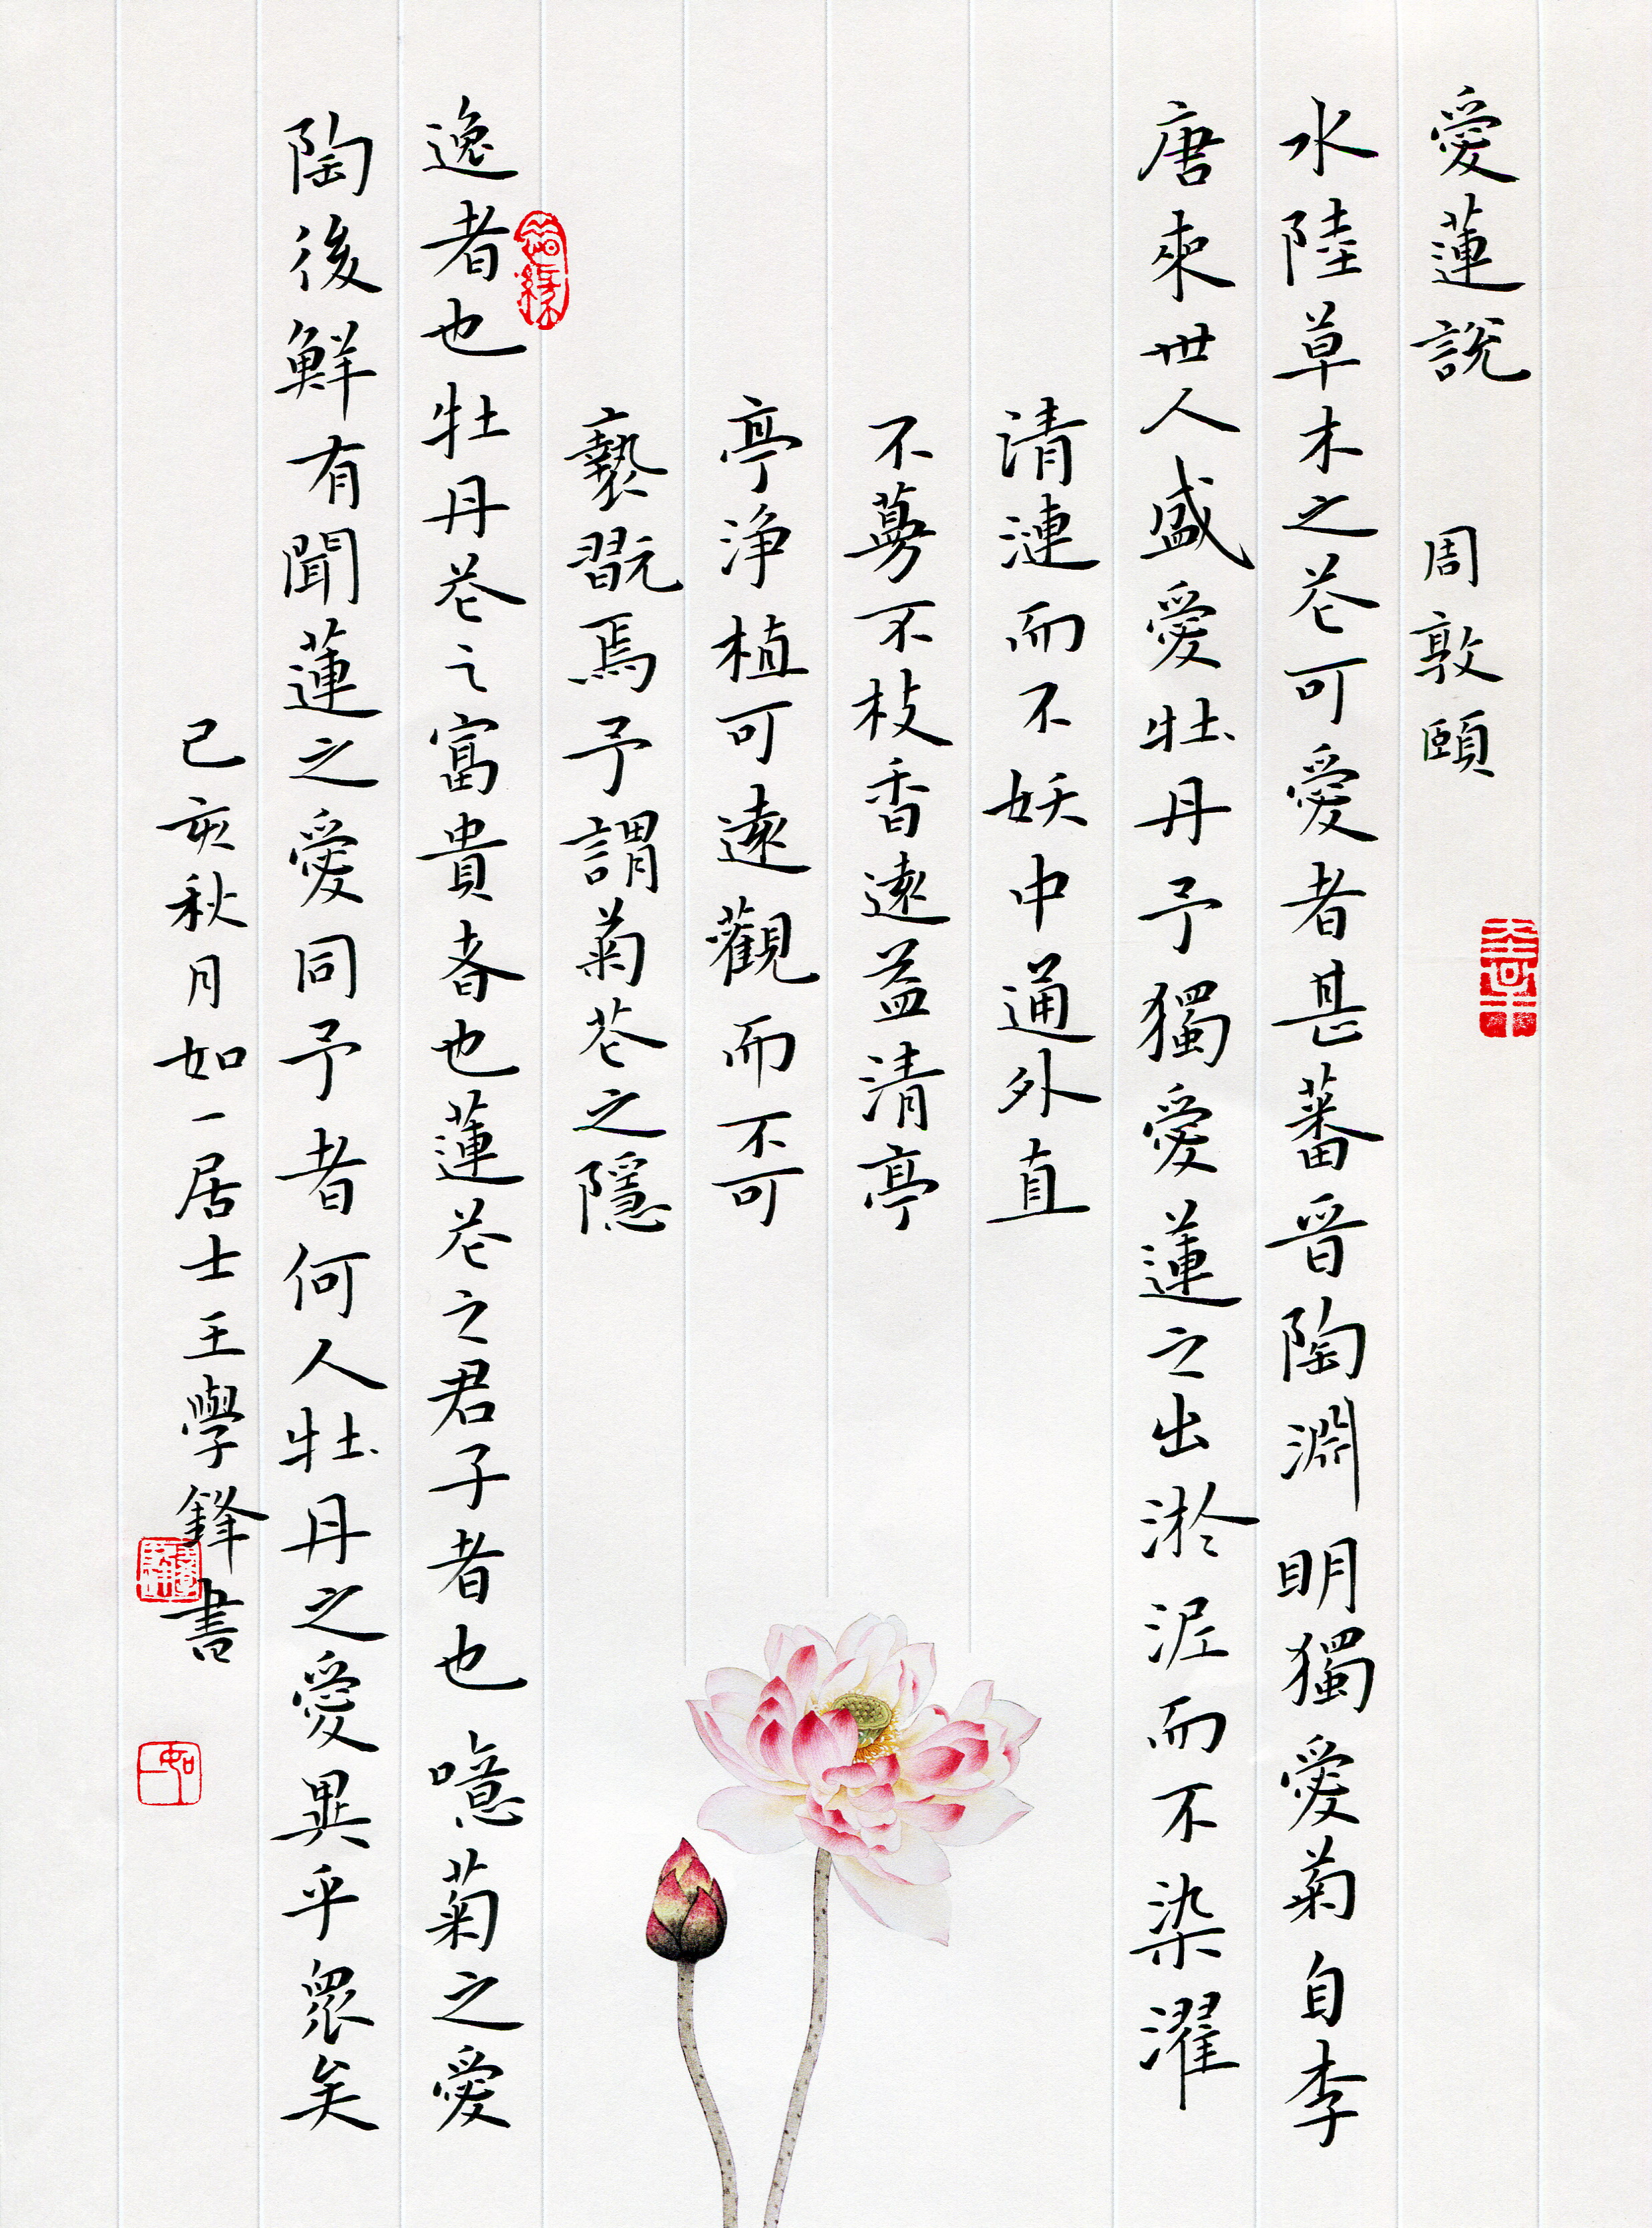 愛蓮說 周敦頤
水陸草木之花可愛者甚蕃晉陶淵明獨愛菊自李
唐來世人盛愛牡丹予獨愛蓮之出淤泥而不染濯
清漣而不妖中通外直
不蔓不枝香遠益清亭
亭淨植可遠觀而不可
褻翫焉予謂菊花之隱
逸者也牡丹花之富貴者也蓮花之君子者也噫菊之愛
陶後鮮有聞蓮之愛同予者何人牡丹之愛異乎眾矣
己亥秋月如一居士王學鋒書
如一